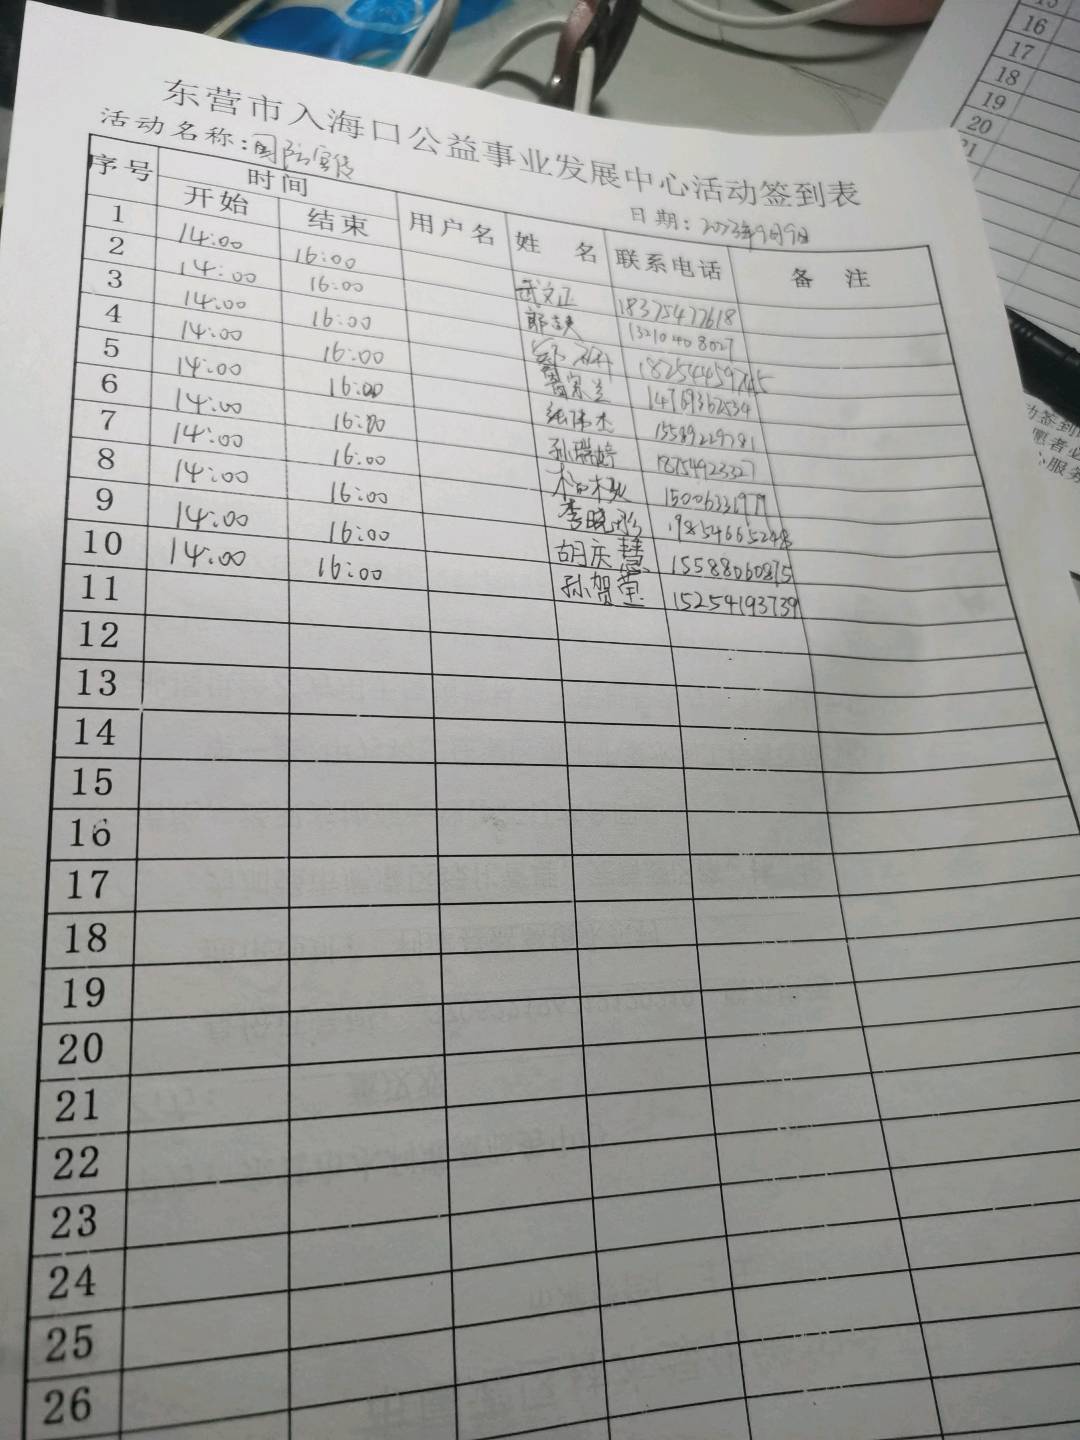 东营市入海口公益事业发展中心活动签到表
活动名称:国防宣传
日期: 2023年9月9日
序号 时间 用户名 姓 名 联系电话 备 注
开始 结束
1 14:00 16:00 武文正 18375477618
2 14:00 16:00 13210408027
3 14:00 16:00 18254459745
4 14:00 16:00 14769362534
5 14:00 16:00 15589229781
6 14:00 16:00 孙瑞婷
7 14:00 16:00
8 14:00 16:00 李晓彤
9 14:00 16:00 胡庆慧 15588060875
10 14:00 16:00 孙贺莹 15254193739
11
12
13
14
15
16
17
18
19
20
21
22
23
24
25
26
16
17
18
19
20
21